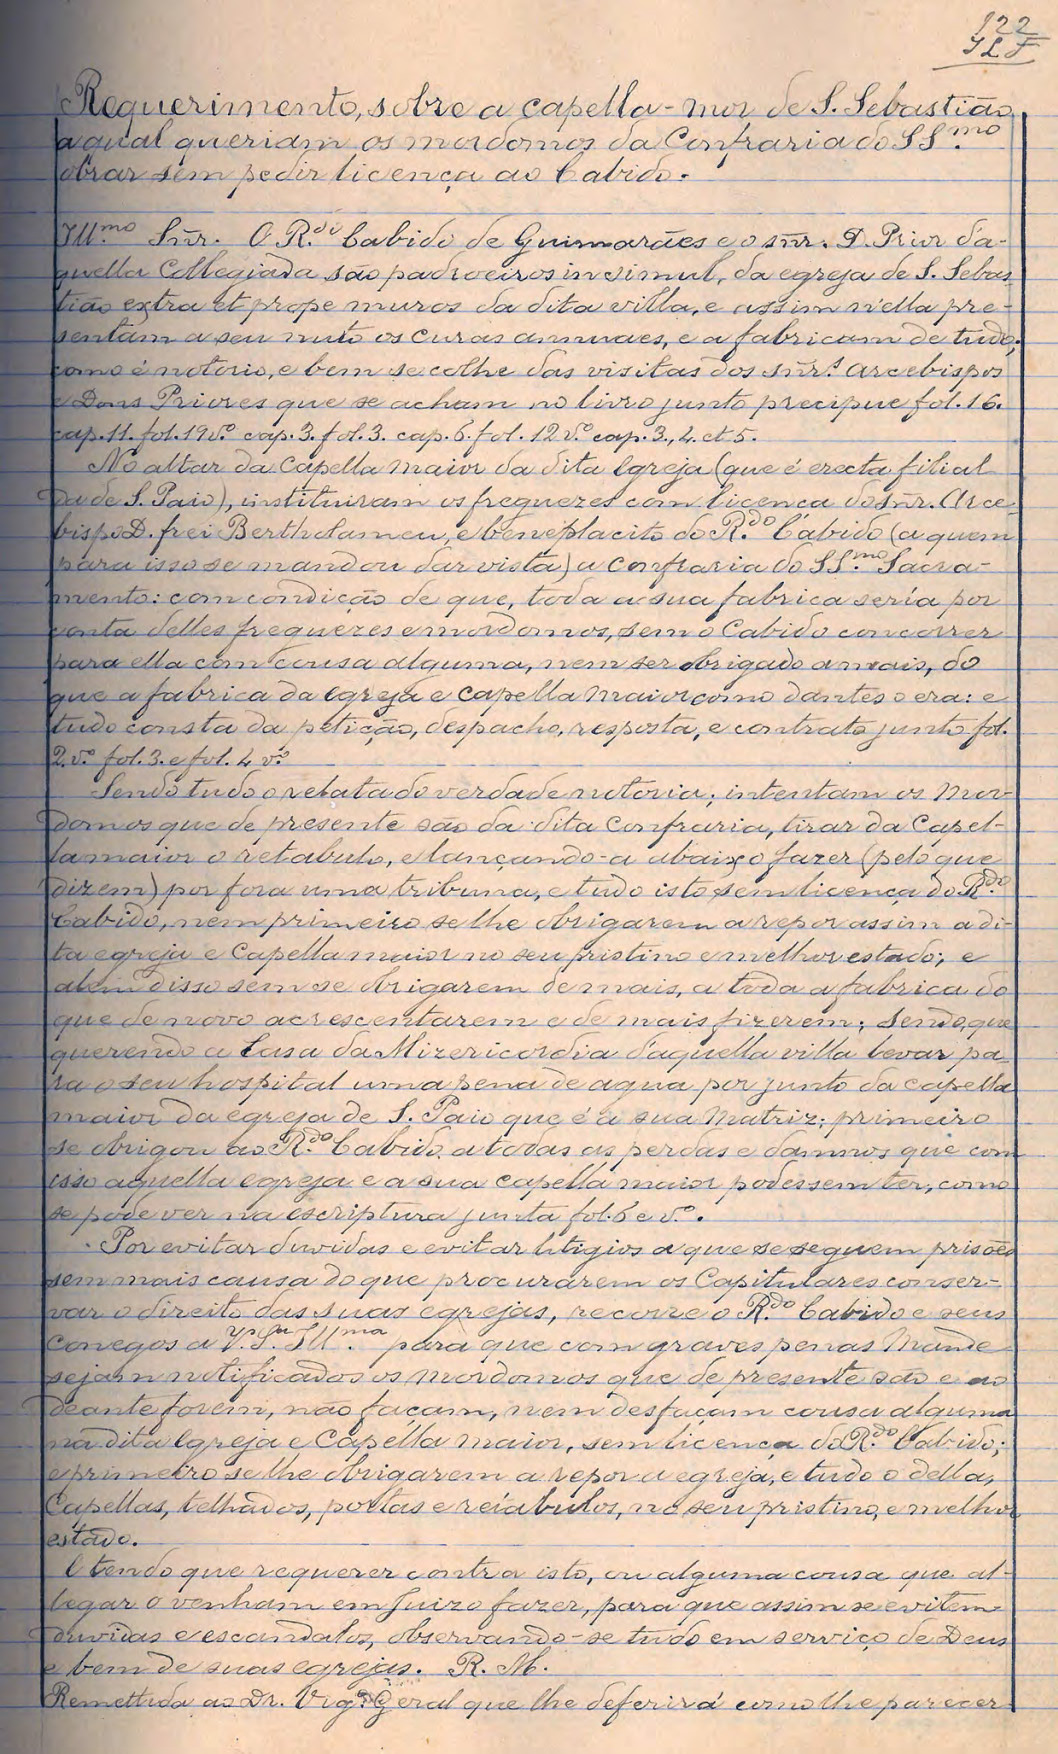 122
JLF
Requerimento, sobre a capella-mor de S. Sebastião,
a qual queriam os mordomos da Confraria do SS.mo
obrar sem pedir licença ao Cabido.
Ill.mo Snr. O R.do Cabido de Guimarães e o snr. D. Prior da-
quella Collegiada são padroeiros insimul, da egreja de S. Sebas
tião extra et prope muros da dita villa, e assim n'ella pre-
sentam a seu nuto os curas annuaes, e a fabricam de tudo,
como é notorio, e bem se colhe das visitas dos snr.s Arcebispos
e Dons Priores que se acham no livro junto precipue fol. 16.
cap. 11. fol. 19 v.o cap. 3. fol. 3. cap. 6. fol. 12 v.o cap. 3., 4. et 5.
No altar da Capella maior da dita Igreja (que é erecta filial
da de S. Paio), instituiram os freguezes com licença do snr. Arce
bispo D. frei Bertholameu, e beneplacito do R.do Cabido (a quem
para isso se mandou dar vista) a Confraria do SS.mo Sacra-
mento: com condição de que, toda a sua fabrica seria por
conta delles freguezes e mordomos, sem o Cabido concorrer
para ella com cousa alguma, nem ser obrigado a mais, do
que a fabrica da egreja e capella maior como dantes o era: e
tudo consta da petição, despacho, resposta, e contrato junto fol.
2. v.o fol. 3. e fol. 4 v.o
Sendo tudo o relatado verdade notoria; intentam os Mor-
domos que de presente são da dita Confraria, tirar da Capel-
la maior o retabulo, e lançando-a abaixo fazer (pelo que
dizem) por fora uma tribuna, e tudo isto sem licença do R.do
Cabido, nem primeiro se lhe obrigarem a repor assim a di-
ta egreja e Capella maior no seu pristino e melhor estado; e
alem disso sem se obrigarem de mais, a toda a fabrica do
que de novo acrescentarem e de mais fizerem; sendo, que
querendo a Casa da Mizericordia d'aquella villa levar pa-
ra o seu hospital uma pena de agua por junto da capella
maior da egreja de S. Paio que é a sua Matriz; primeiro
se obrigou ao R.do Cabido a todas as perdas e damnos que com
isso aquella egreja e a sua capella maior podessem ter, como
se pode ver na escriptura junta fol. 6 e v.o.
Por evitar duvidas e evitar litigios a que se seguem prisões
sem mais causa do que procurarem os Capitulares conser-
var o direito das suas egrejas, recorre o R.do Cabido e seus
conegos a V. S.a Ill.ma para que com graves penas Mande
sejam notificados os mordomos que de presente são e ao
deante forem, não façam, nem desfaçam cousa alguma
na dita Igreja e Capella maior, sem licença do R.do Cabido;
e primeiro se lhe obrigarem a repor a egreja, e tudo o della,
Capellas, telhados, portas e retabulos, no seu pristino, e melhor
estado.
E tendo que requerer contra isto, ou alguma cousa que al-
legar o venham em Juizo fazer, para que assim se evitem
duvidas e escandalos, observando-se tudo em serviço de Deus
e bem de suas egrejas. R. M.
Remettida ao Dr. Vig.o Geral que lhe deferirá como lhe parecer